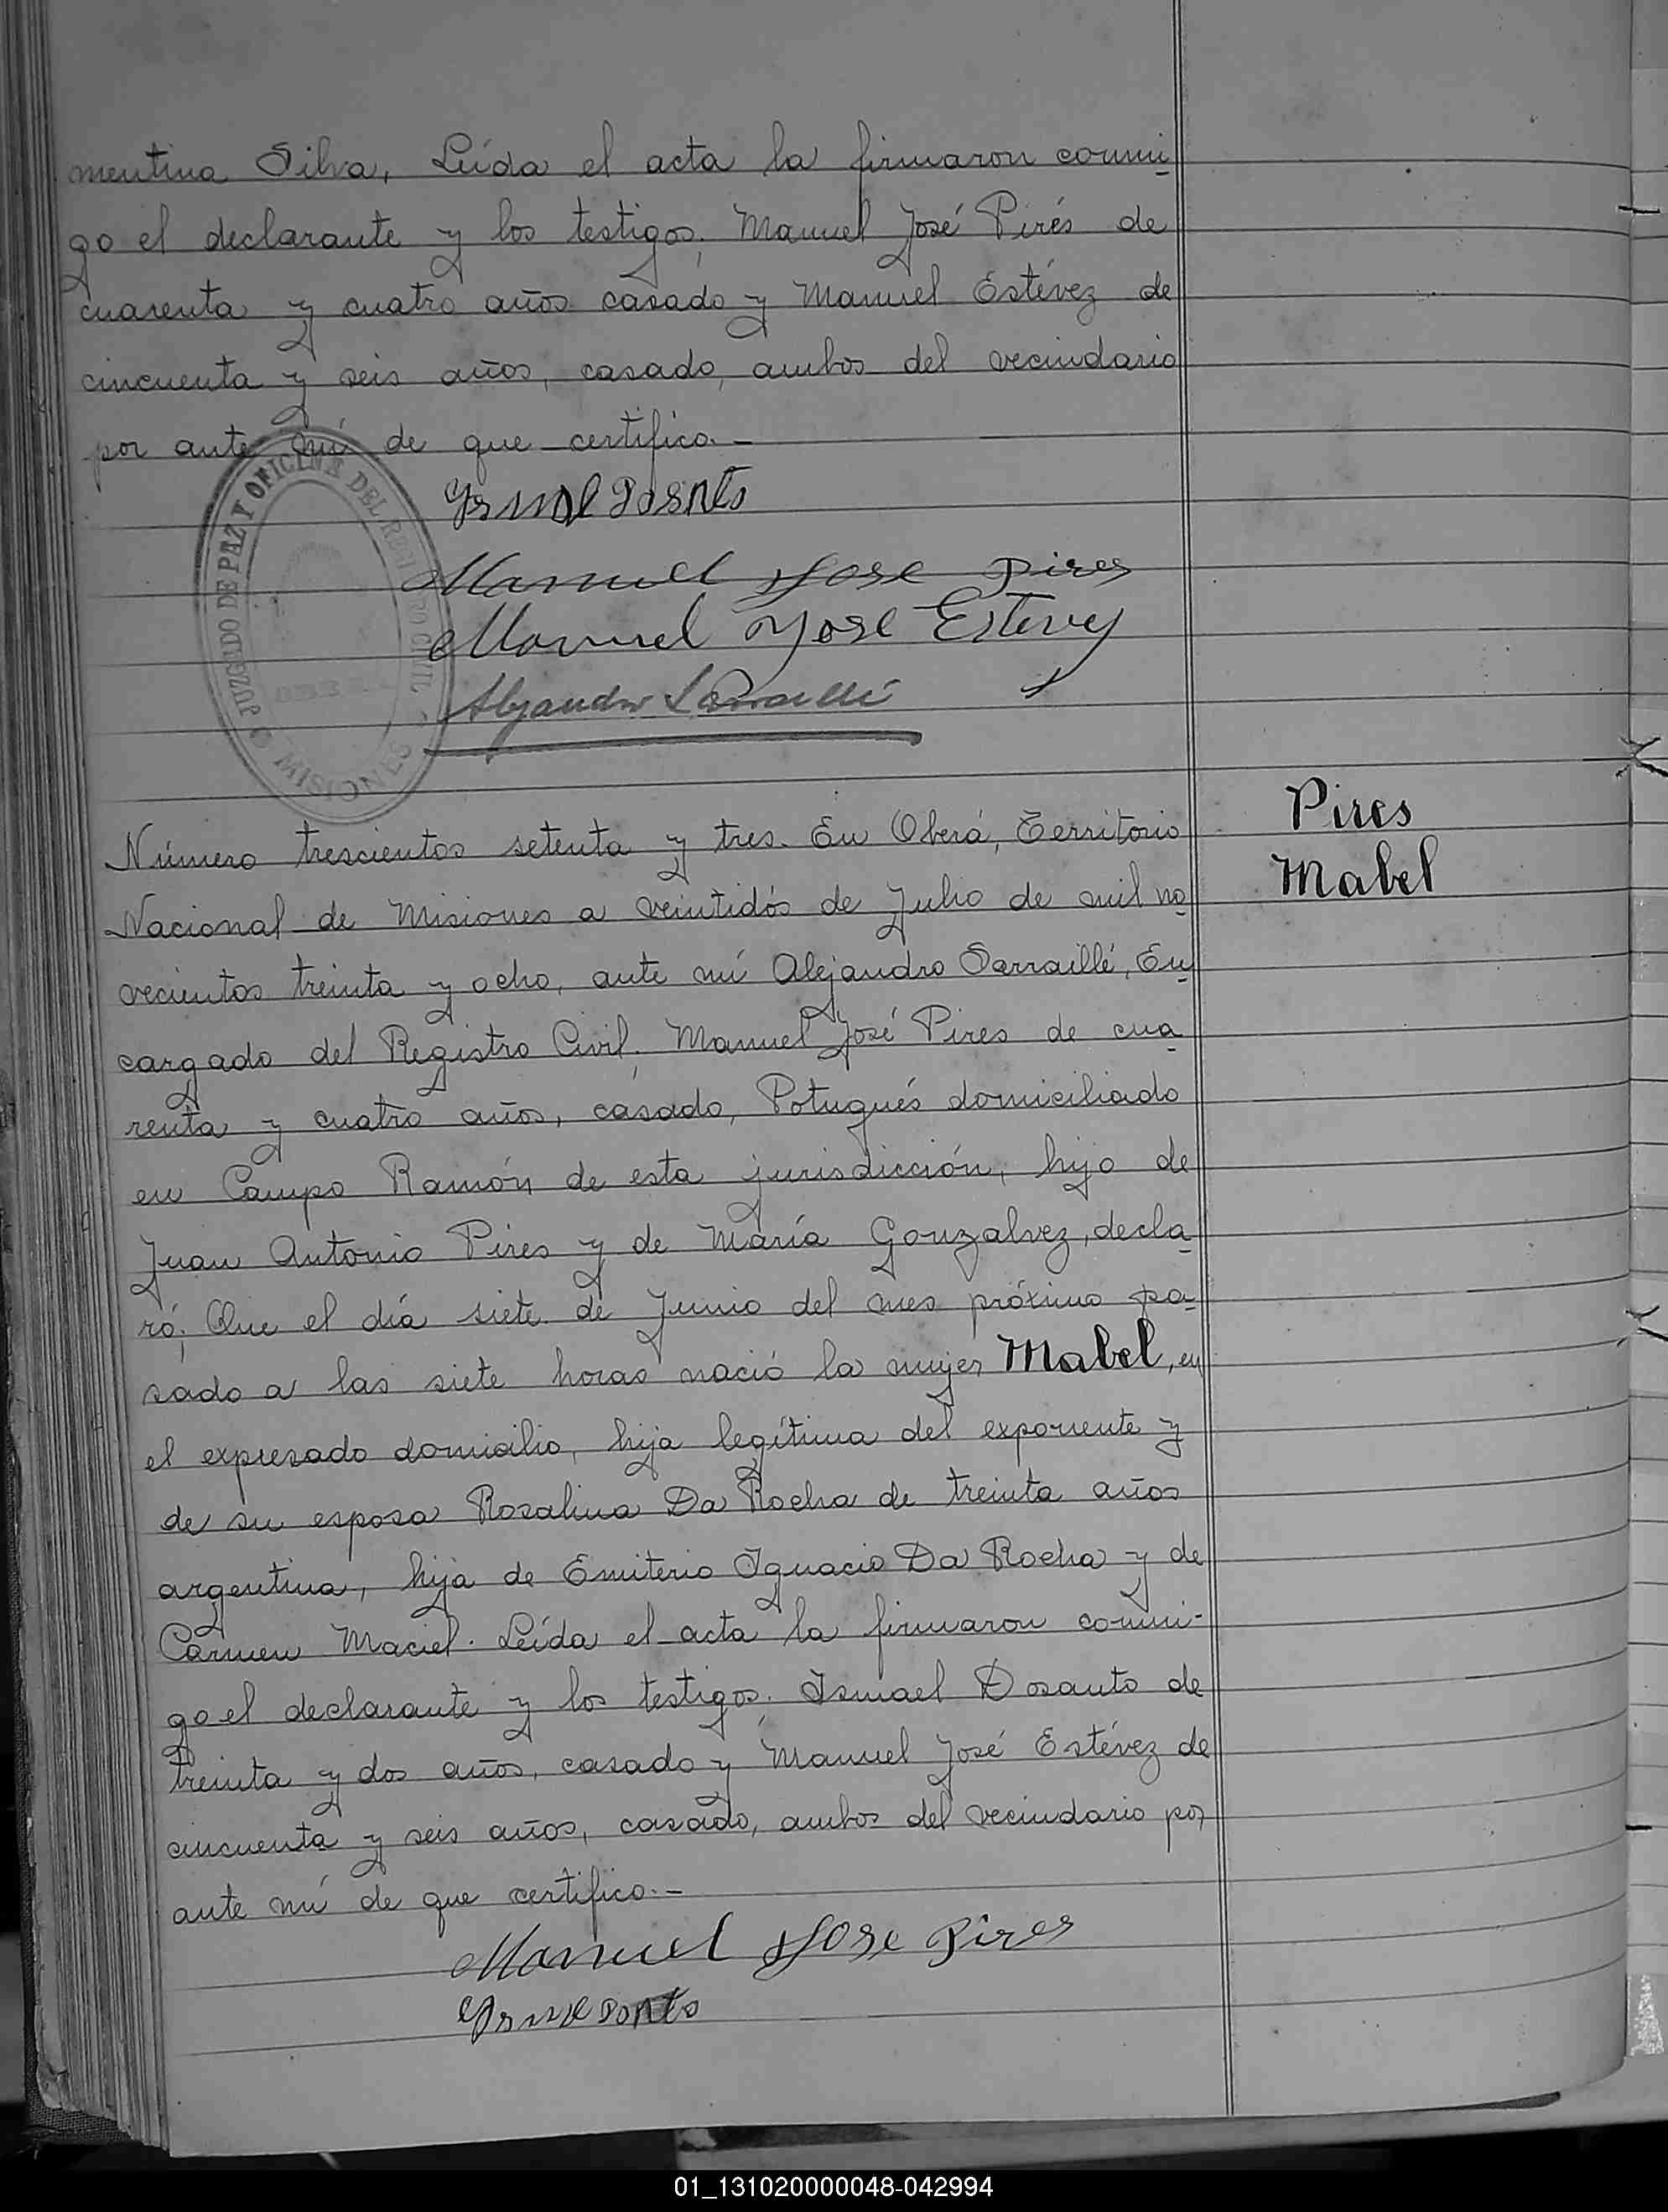 mentina Silva, Leída el acta la firmaron conmi-
go el declarante y los testigos: Manuel José Pirés de
cuarenta y cuatro años casado y Manuel Estévez de
cincuenta y seis años, casado, ambos del vecindario
por ante mí de que certifico.-
JUZGADO DE PAZ Y OFICINA DEL REGISTRO CIVIL
MISIONES
Manuel Jose Pires
Manuel Jose Estevez
Alejandro Sarraillé
Pires
Mabel
Número trescientos setenta y tres. En Oberá, Territorio
Nacional de Misiones a veintidós de Julio de mil no-
vecientos treinta y ocho, ante mí Alejandro Sarraillé, En-
cargado del Registro Civil; Manuel José Pires de cua-
renta y cuatro años, casado, Potugués domiciliado
en Campo Ramón de esta jurisdicción, hijo de
Juan Antonio Pires y de María Gonzalvez, decla-
ró; Que el día siete de Junio del mes próximo pa-
sado a las siete horas nació la mujer Mabel, en
el expresado domicilio, hija legítima del exponente y
de su esposa Rosalina Da Rocha de treinta años
argentina, hija de Emiterio Ignacio Da Rocha y de
Carmen Maciel. Leída el acta la firmaron conmi-
go el declarante y los testigos: Ismael Dosanto de
treinta y dos años, casado y Manuel José Estévez de
cincuenta y seis años, casado, ambos del vecindario por
ante mí de que certifico.-
Manuel Jose Pires
01_131020000048-042994